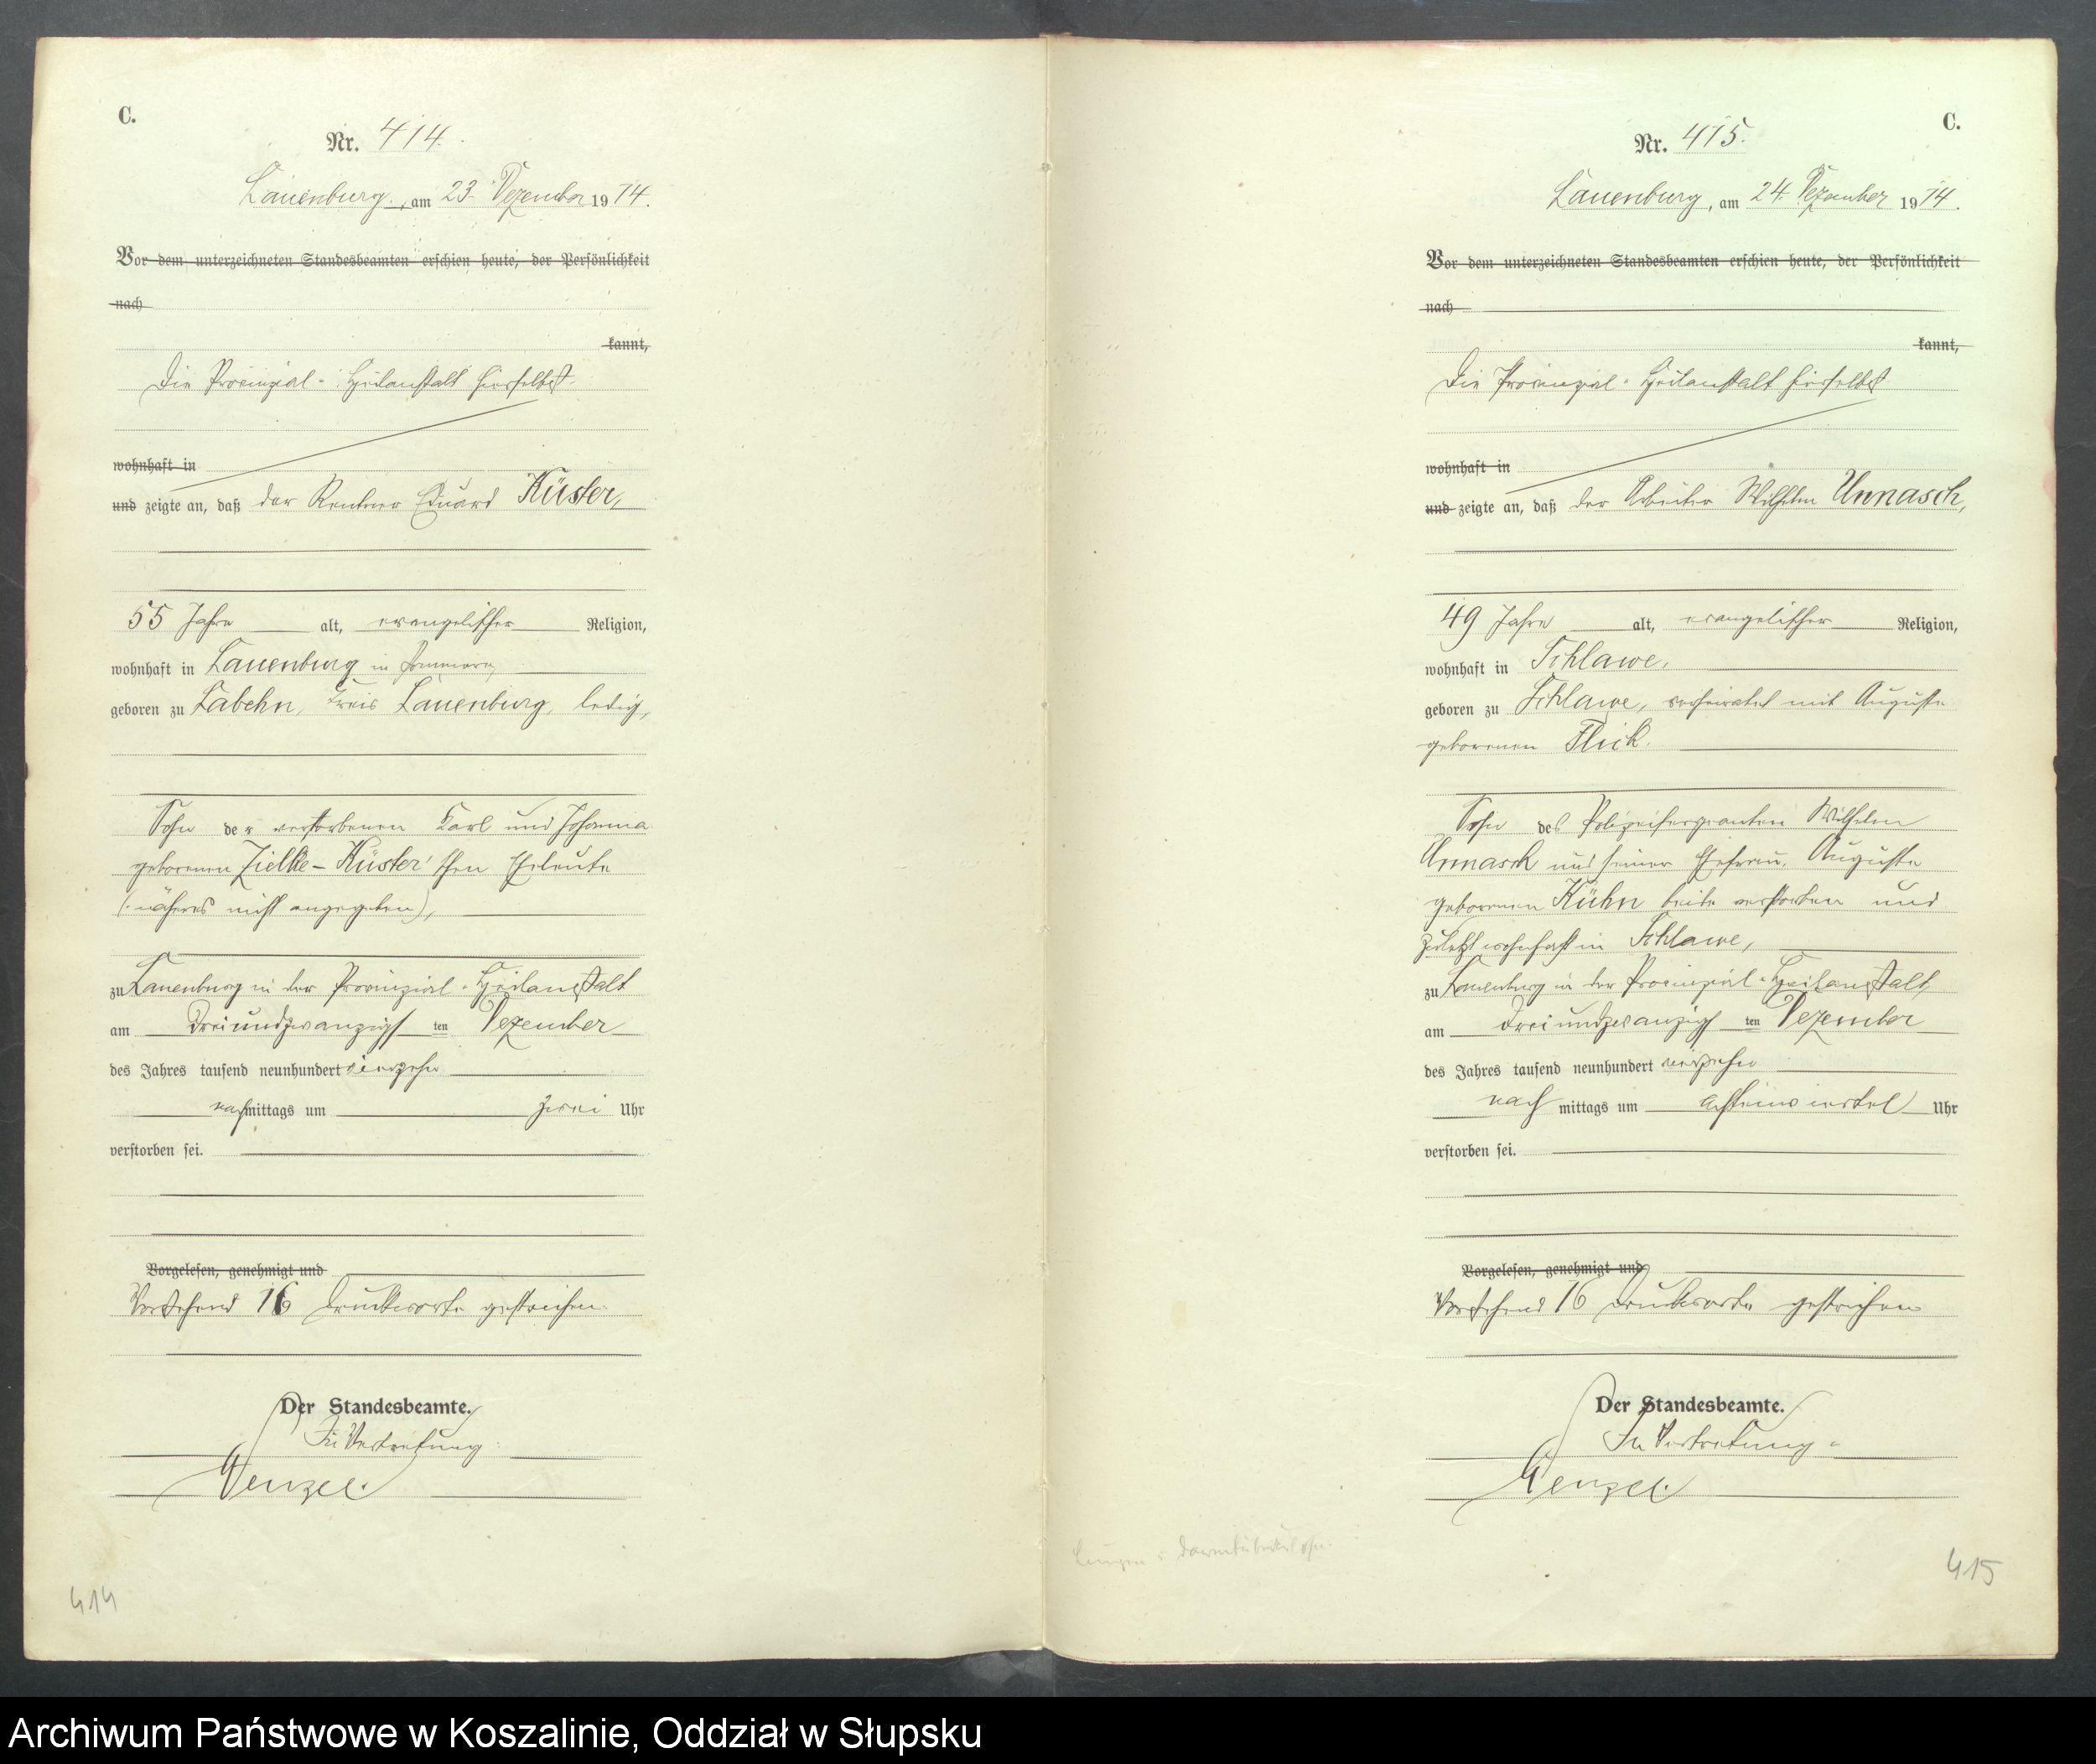 C.
Nr. 414.
Lauenburg, am 23. Dezember 1914.
Vor dem unterzeichneten Standesbeamten erschien heute, der Persönlichkeit
nach
kannt,
Die Provinzial-Heilanstalt hierselbst
wohnhaft in
und zeigte an, daß der Rentner Eduard Küster,
55 Jahre alt, evangelischer Religion,
wohnhaft in Lauenburg in Pommern,
geboren zu Labehn, Kreis Lauenburg, ledig,
Sohn der verstorbenen Karl und Johanna
geborenen Zielke-Küster'schen Eheleute
(näheres nicht angegeben),
zu Lauenburg in der Provinzial-Heilanstalt
am Dreiundzwanzigsten Dezember
des Jahres tausend neunhundert vierzehn
nachmittags um zwei Uhr
verstorben sei.
Vorgelesen, genehmigt und
Vorstehend 16 Druckworte gestrichen.
Der Standesbeamte.
In Vertretung:
Wenzel.
414
C.
Nr. 415.
Lauenburg, am 24. Dezember 1914.
Vor dem unterzeichneten Standesbeamten erschien heute, der Persönlichkeit
nach
kannt,
Die Provinzial-Heilanstalt hierselbst
wohnhaft in
und zeigte an, daß der Arbeiter Wilhelm Unnasch,
49 Jahre alt, evangelischer Religion,
wohnhaft in Schlawe,
geboren zu Schlawe, verheiratet mit Auguste
geborenen Flick.
Sohn des Polizeisergeanten Wilhelm
Unnasch und seiner Ehefrau, Auguste
geborenen Kühn beide verstorben und
zuletzt wohnhaft in Schlawe,
zu Lauenburg in der Provinzial-Heilanstalt
am Dreiundzwanzigsten Dezember
des Jahres tausend neunhundert vierzehn
nachmittags um achteinviertel Uhr
verstorben sei.
Vorgelesen, genehmigt und
Vorstehend 16 Druckworte gestrichen
Der Standesbeamte.
In Vertretung:
Wenzel.
Lungen- Darmtuberkulose.
415
Archiwum Państwowe w Koszalinie, Oddział w Słupsku